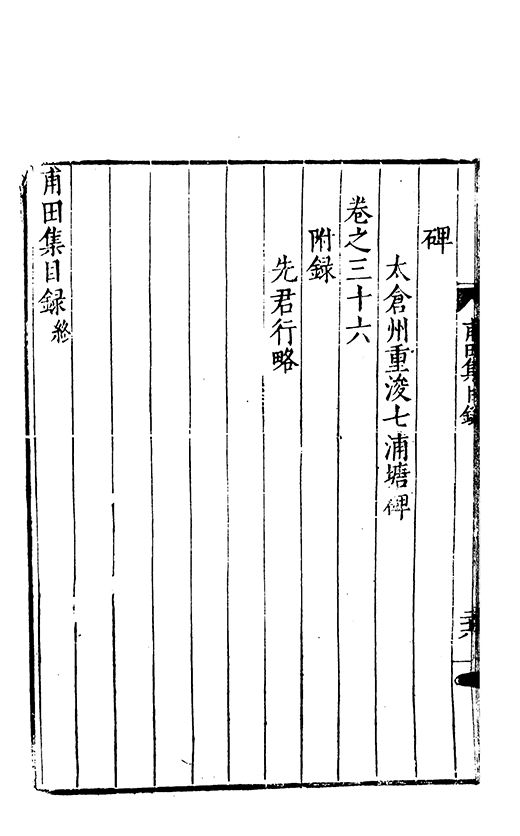 碑
太倉州重浚七浦塘碑
卷之三十六
附録
先君行略
甫田集目録終
甫田集目録